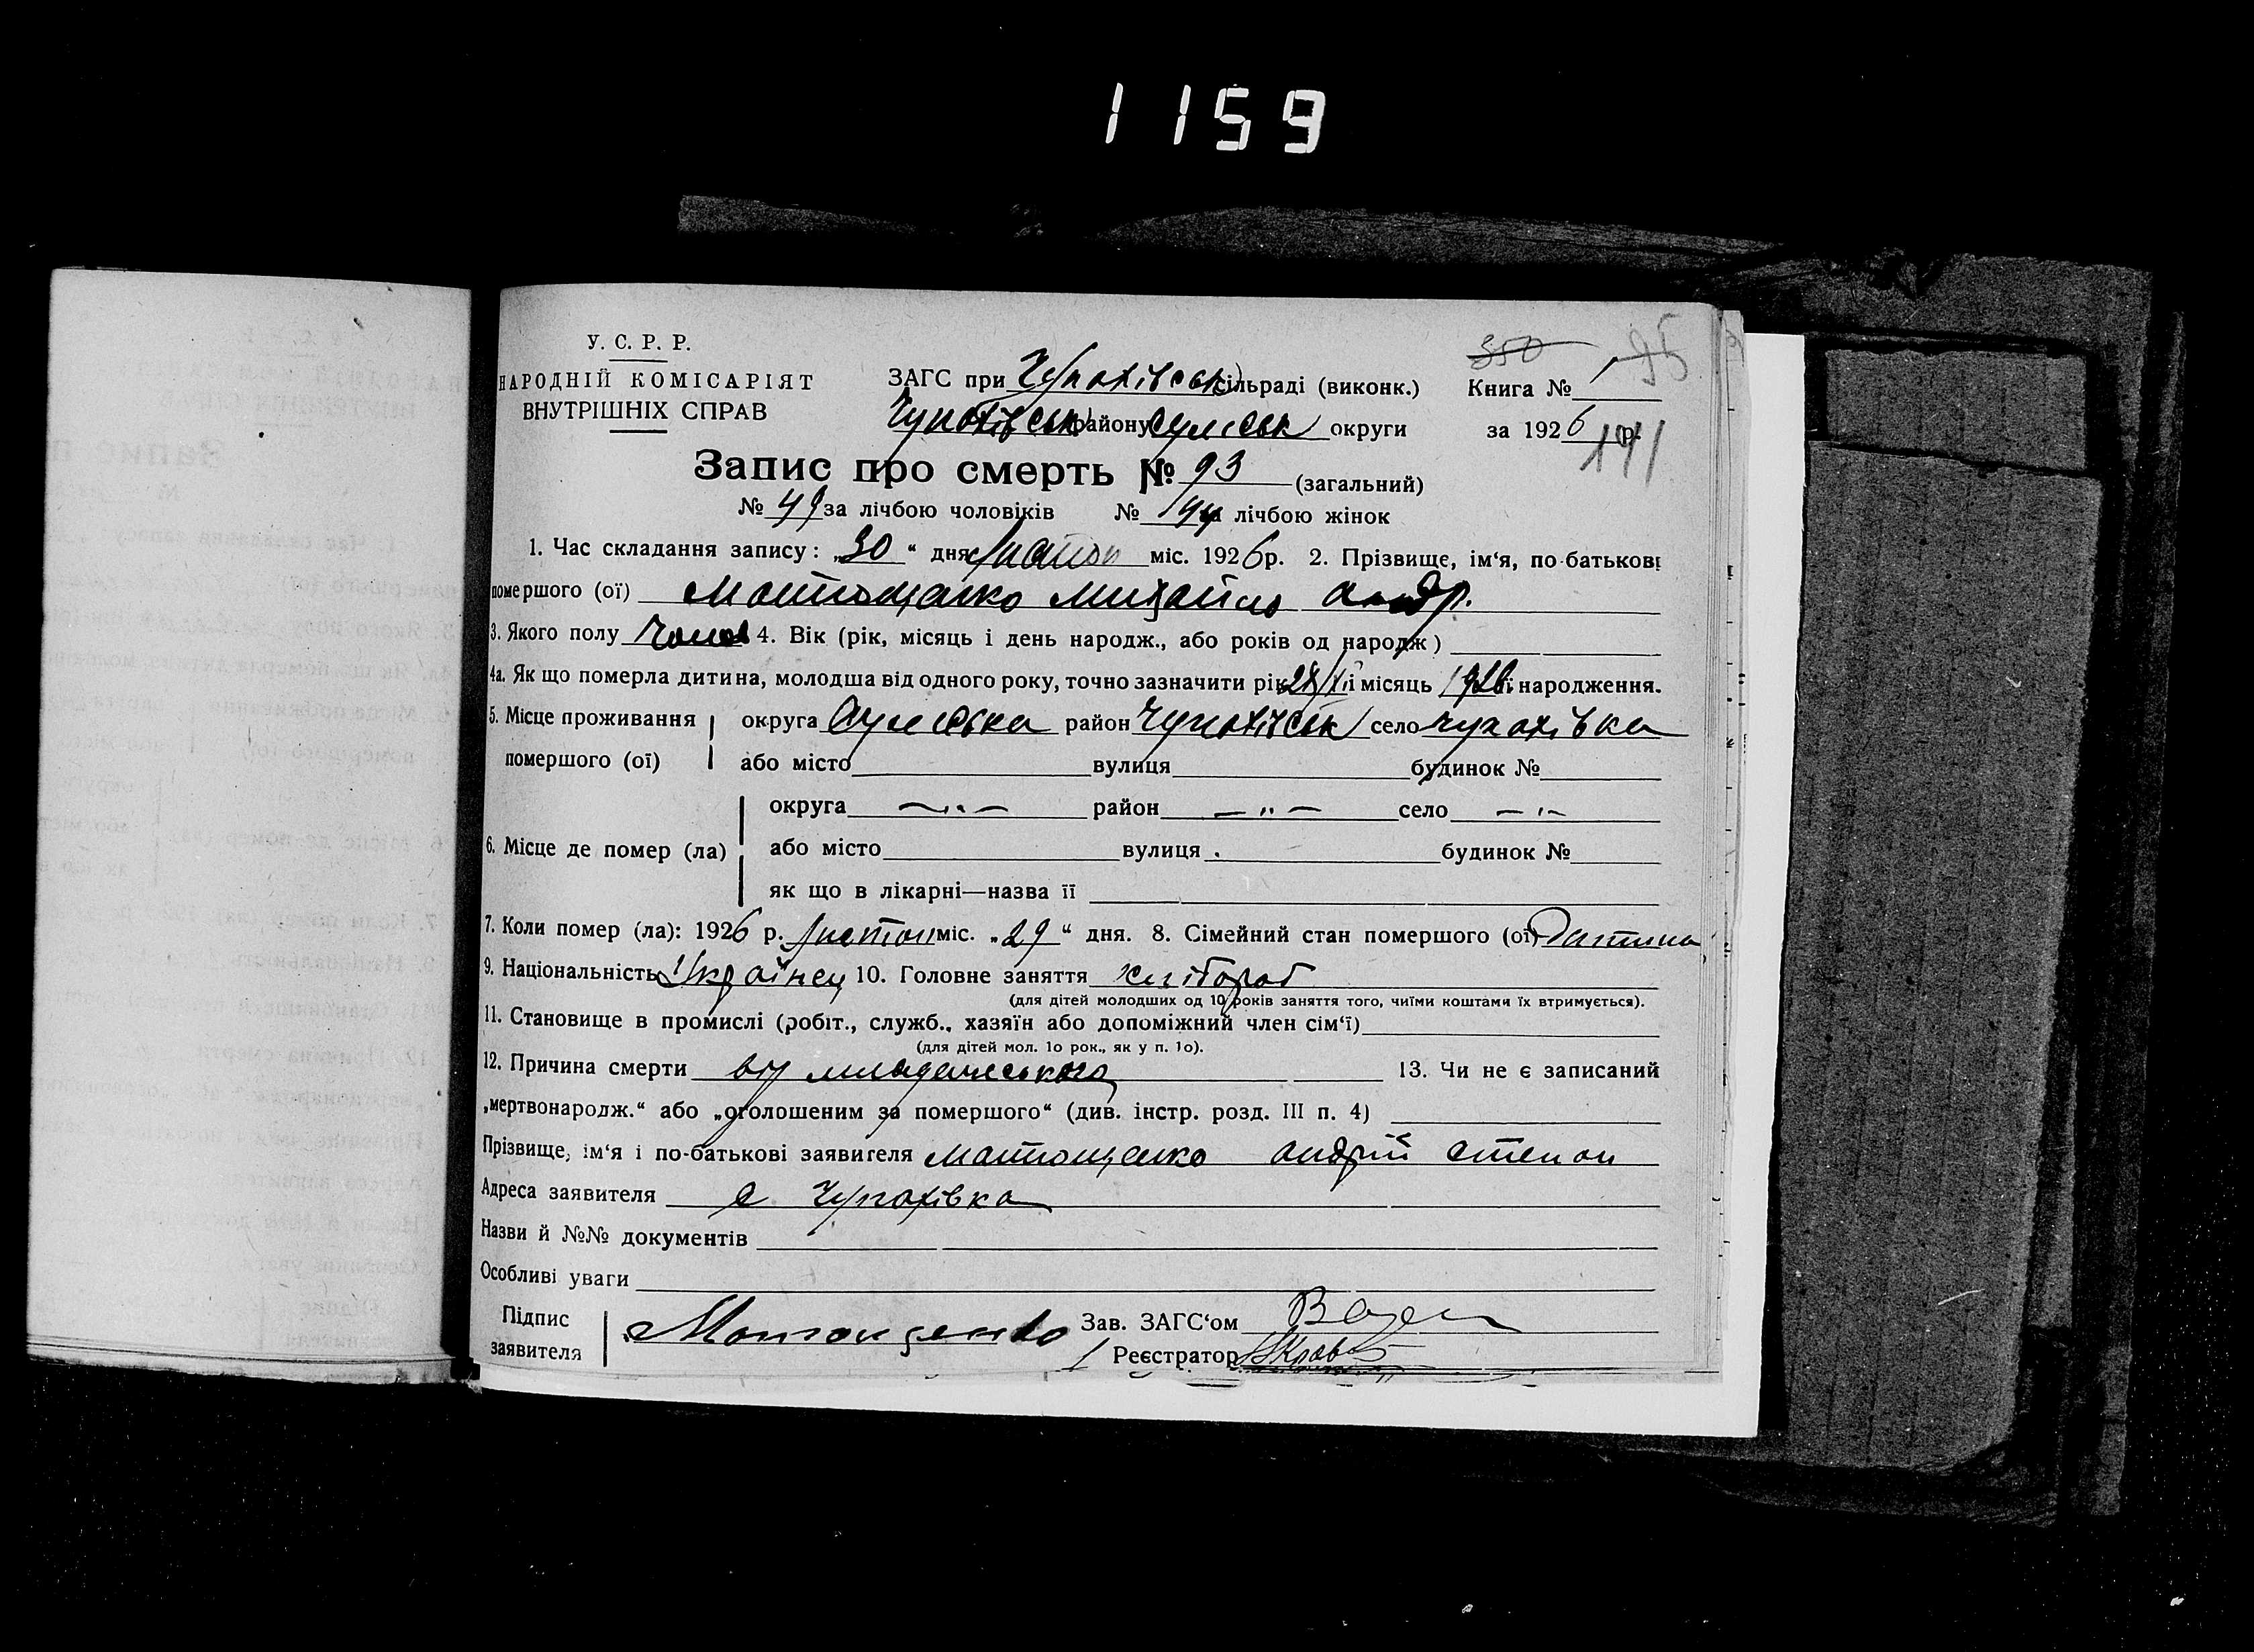 1159
У. С. Р. Р.
НАРОДНІЙ КОМІСАРІЯТ
ВНУТРІШНІХ СПРАВ
350 95
ЗАГС при Чупахівськ сільраді (виконк.) Книга №
Чупахівськ району Сумськ округи за 1926 р.
Запис про смерть № 93 (загальний)
№ 49 за лічбою чоловіків № за лічбою жінок
1. Час складання запису: „30“ дня листоп міс. 1926 р. 2. Прізвище, ім‘я, по-батькові
помершого (ої) Матющенко Михайло Андр.
3. Якого полу Чолов 4. Вік (рік, місяць і день народж., або років од народж)
4а. Як що померла дитина, молодша від одного року, точно зазначити рік 28/ і місяць її народження.
5. Місце проживання помершого (ої) округа Сумська район Чупахівськ село Чупахівка
або місто вулиця будинок №
6. Місце де помер (ла) округа —„— район —„— село —„—
або місто вулиця будинок №
як що в лікарні—назва її
7. Коли помер (ла): 1926 р. листоп міс. „29“ дня. 8. Сімейний стан помершого (ої) Дитина
9. Національність Українец 10. Головне заняття хлібороб
(для дітей молодших од 10 років заняття того, чиїми коштами їх втримується).
11. Становище в промислі (робіт., служб., хазяїн або допоміжний член сім‘ї)
(для дітей мол. 10 рок., як у п. 10).
12. Причина смерти від младенческого 13. Чи не є записаний
„мертвонародж.“ або „оголошеним за помершого“ (див. інстр. розд. III п. 4)
Прізвище, ім‘я і по-батькові заявителя Матющенко Андрій Степан
Адреса заявителя с. Чупахівка
Назви й №№ документів
Особливі уваги
Підпис заявителя Матющенко Зав. ЗАГС‘ом
Реєстратор